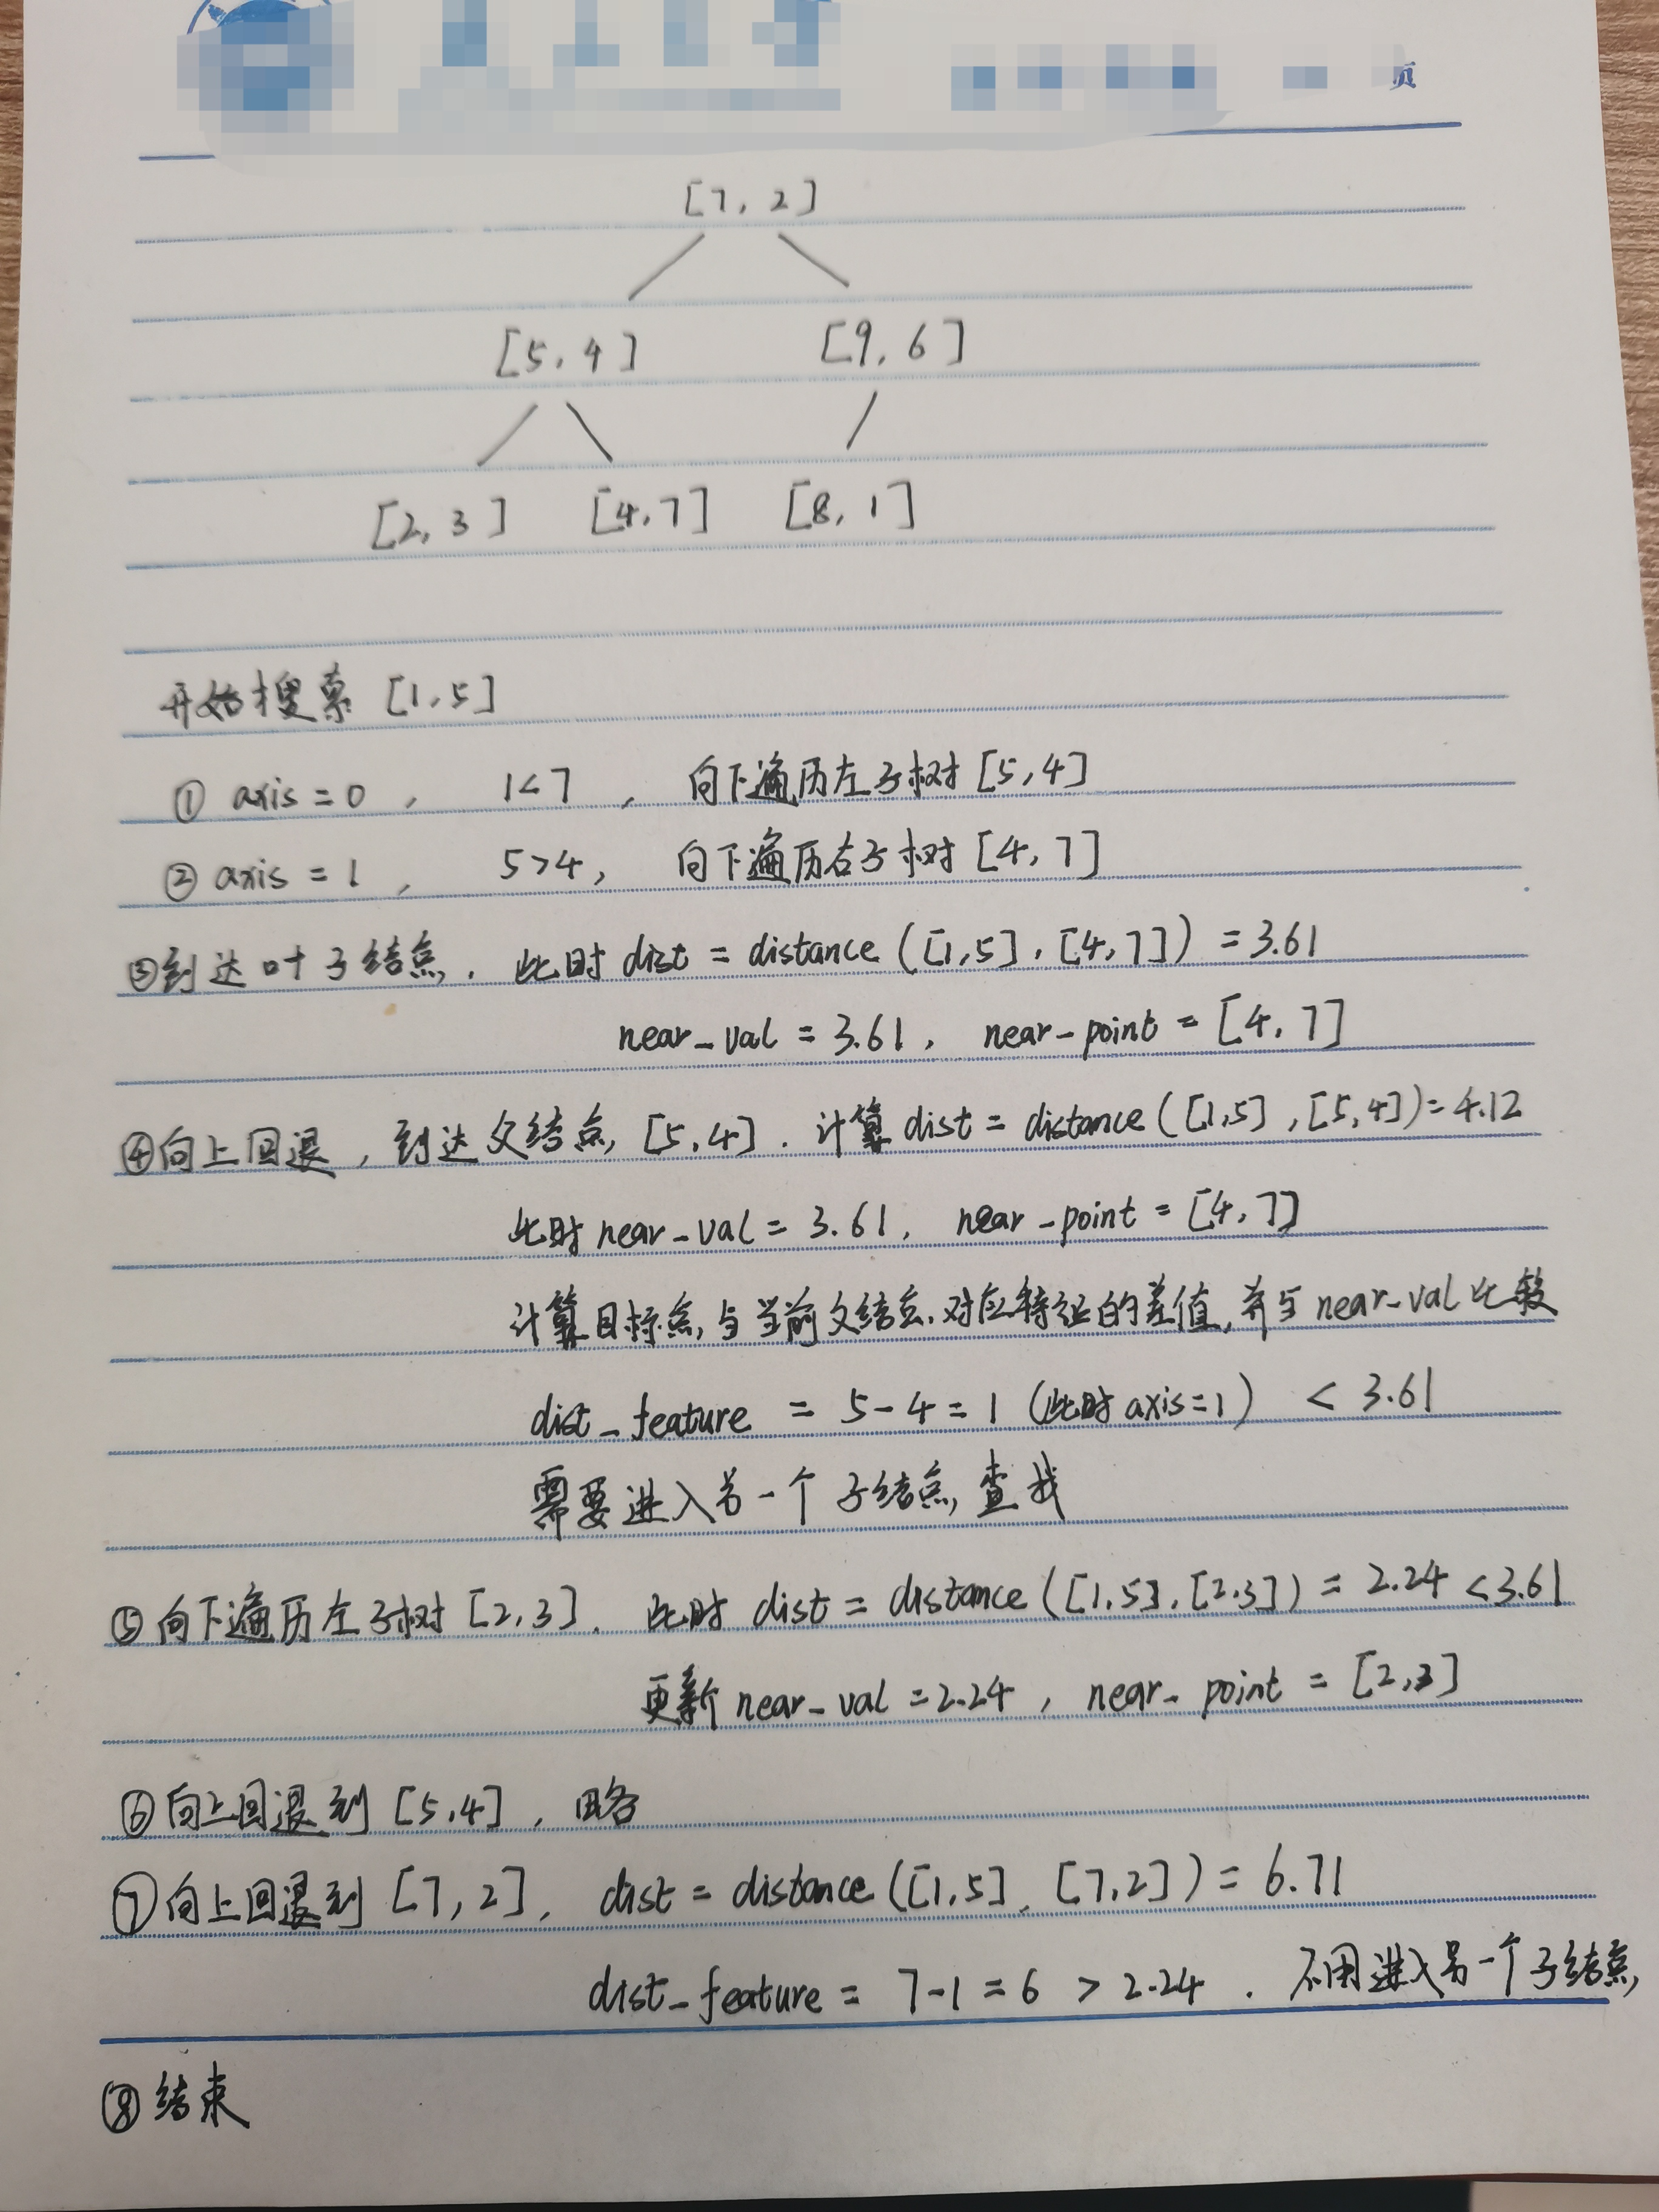 页
[7, 2]
[5, 4] [9, 6]
[2, 3] [4, 7] [8, 1]
开始搜索 [1, 5]
① axis = 0 , 1<7 , 向下遍历左子树 [5, 4]
② axis = 1 , 5>4, 向下遍历右子树 [4, 7]
③到达叶子结点, 此时 dist = distance ([1,5], [4,7]) = 3.61
near_val = 3.61, near-point = [4, 7]
④向上回退, 到达父结点, [5, 4]. 计算 dist = distance ([1,5], [5,4]) = 4.12
此时 near_val = 3.61, near-point = [4, 7]
计算目标点, 与当前父结点, 对应特征的差值, 并与 near-val 比较
dist_feature = 5-4 = 1 (此时 axis=1) < 3.61
需要进入另一个子结点, 查找
⑤向下遍历左子树 [2, 3], 此时 dist = distance ([1,5], [2.3]) = 2.24 < 3.61
更新 near_val = 2.24, near- point = [2,3]
⑥向上回退到 [5,4], 略
⑦向上回退到 [7, 2], dist = distance ([1,5], [7,2]) = 6.71
dist_feature = 7-1 = 6 > 2.24. 不用进入另一个子结点,
⑧结束